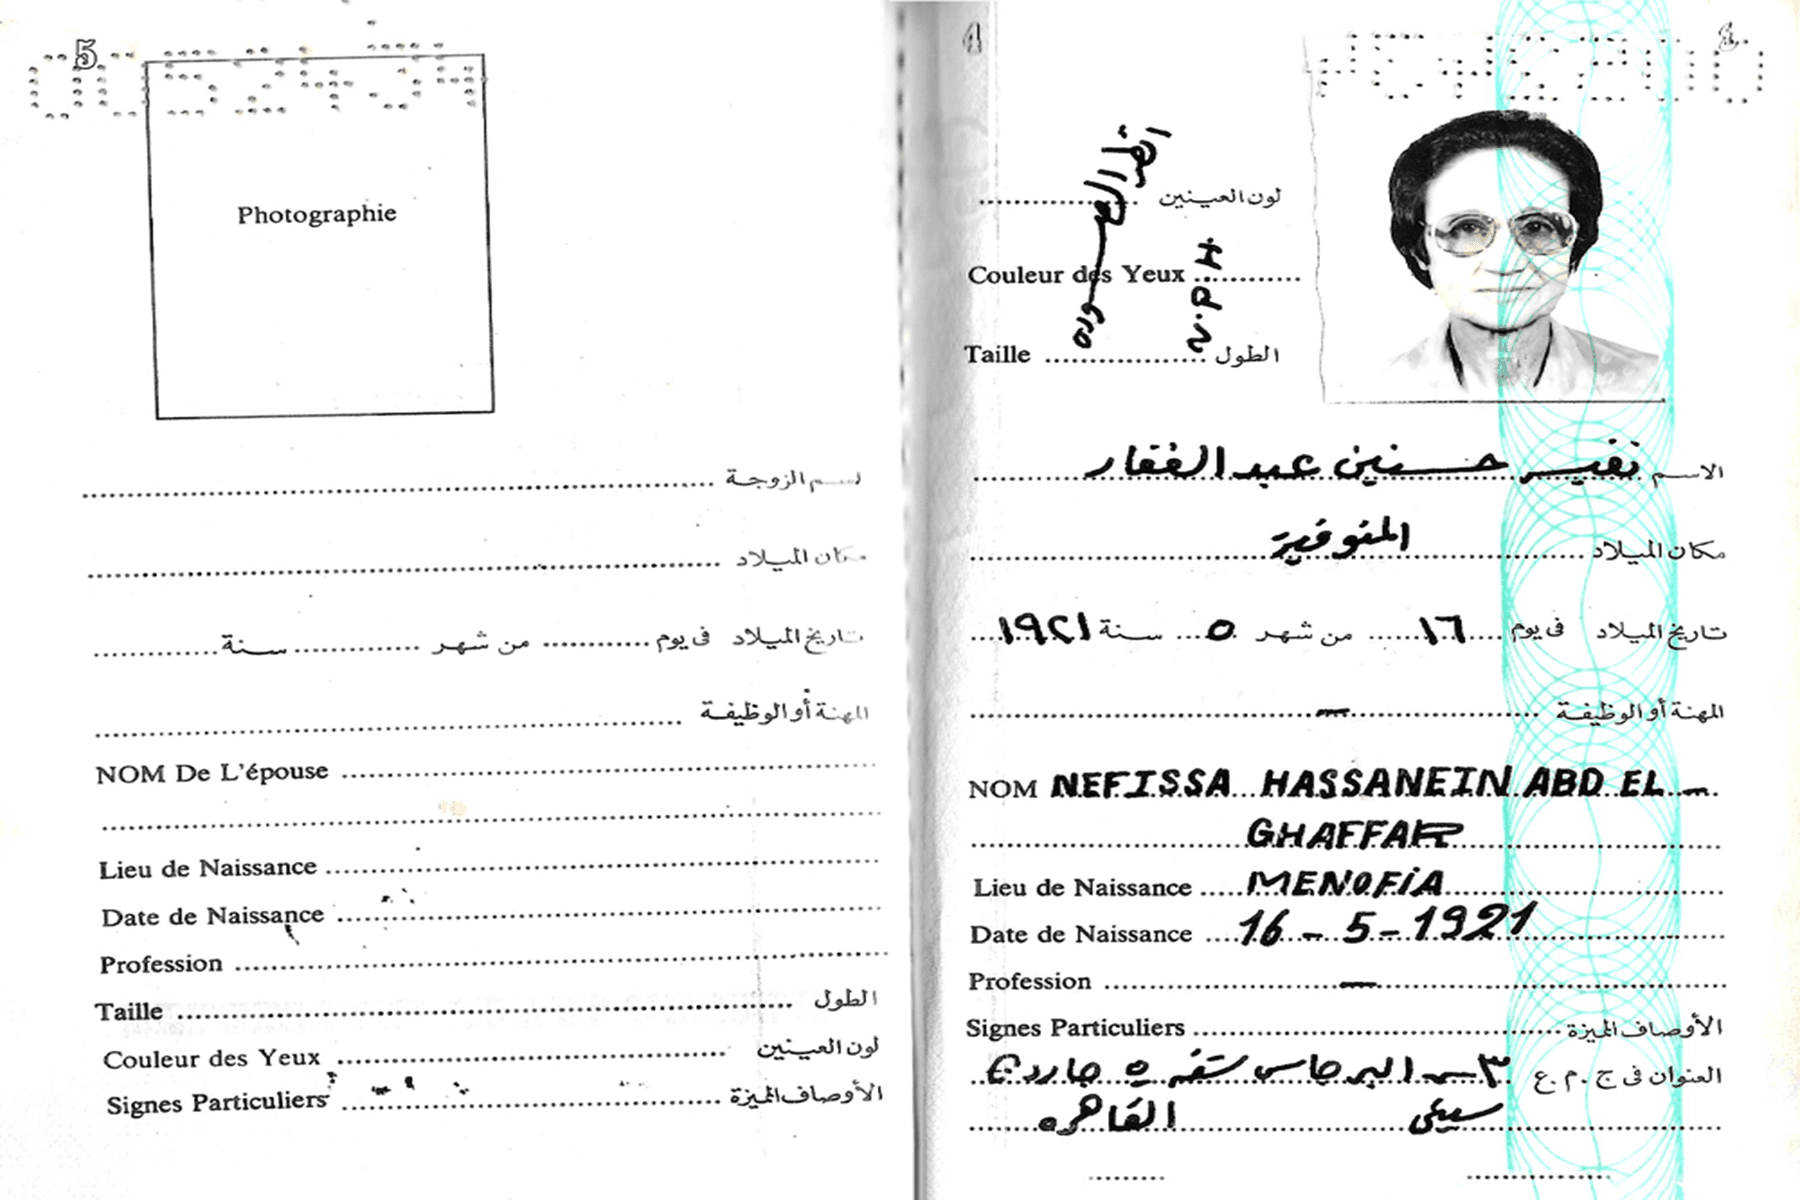 5
0052434
Photographie
اسم الزوجة
مكان الميلاد
تاريخ الميلاد فى يوم من شهر سنة
المهنة أو الوظيفة
NOM De L'épouse
Lieu de Naissance
Date de Naissance
Profession
Taille الطول
Couleur des Yeux لون العينين
Signes Particuliers الأوصاف المميزة
4
لون العينين
Couleur des Yeux
Taille الطول
انظر الصوره
V.P.H
الاسم نفيسه حسنين عبد الغفار
مكان الميلاد المنوفية
تاريخ الميلاد فى يوم ١٦ من شهر ٥ سنة ١٩٢١
المهنة أو الوظيفة —
NOM NEFISSA HASSANEIN ABD EL -
GHAFFAR
Lieu de Naissance MENOFIA
Date de Naissance 16 - 5 - 1921
Profession —
Signes Particuliers الأوصاف المميزة
العنوان فى ج . م . ع ٣ ش البرجاس شقه ٥ جاردن
سيتى القاهره